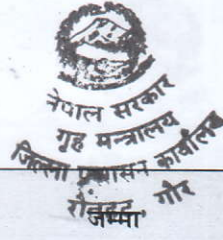 नेपाल सरकार
गृह मन्त्रालय
जिल्ला प्रशासन कार्यालय
रौतहट गौर
जम्मा